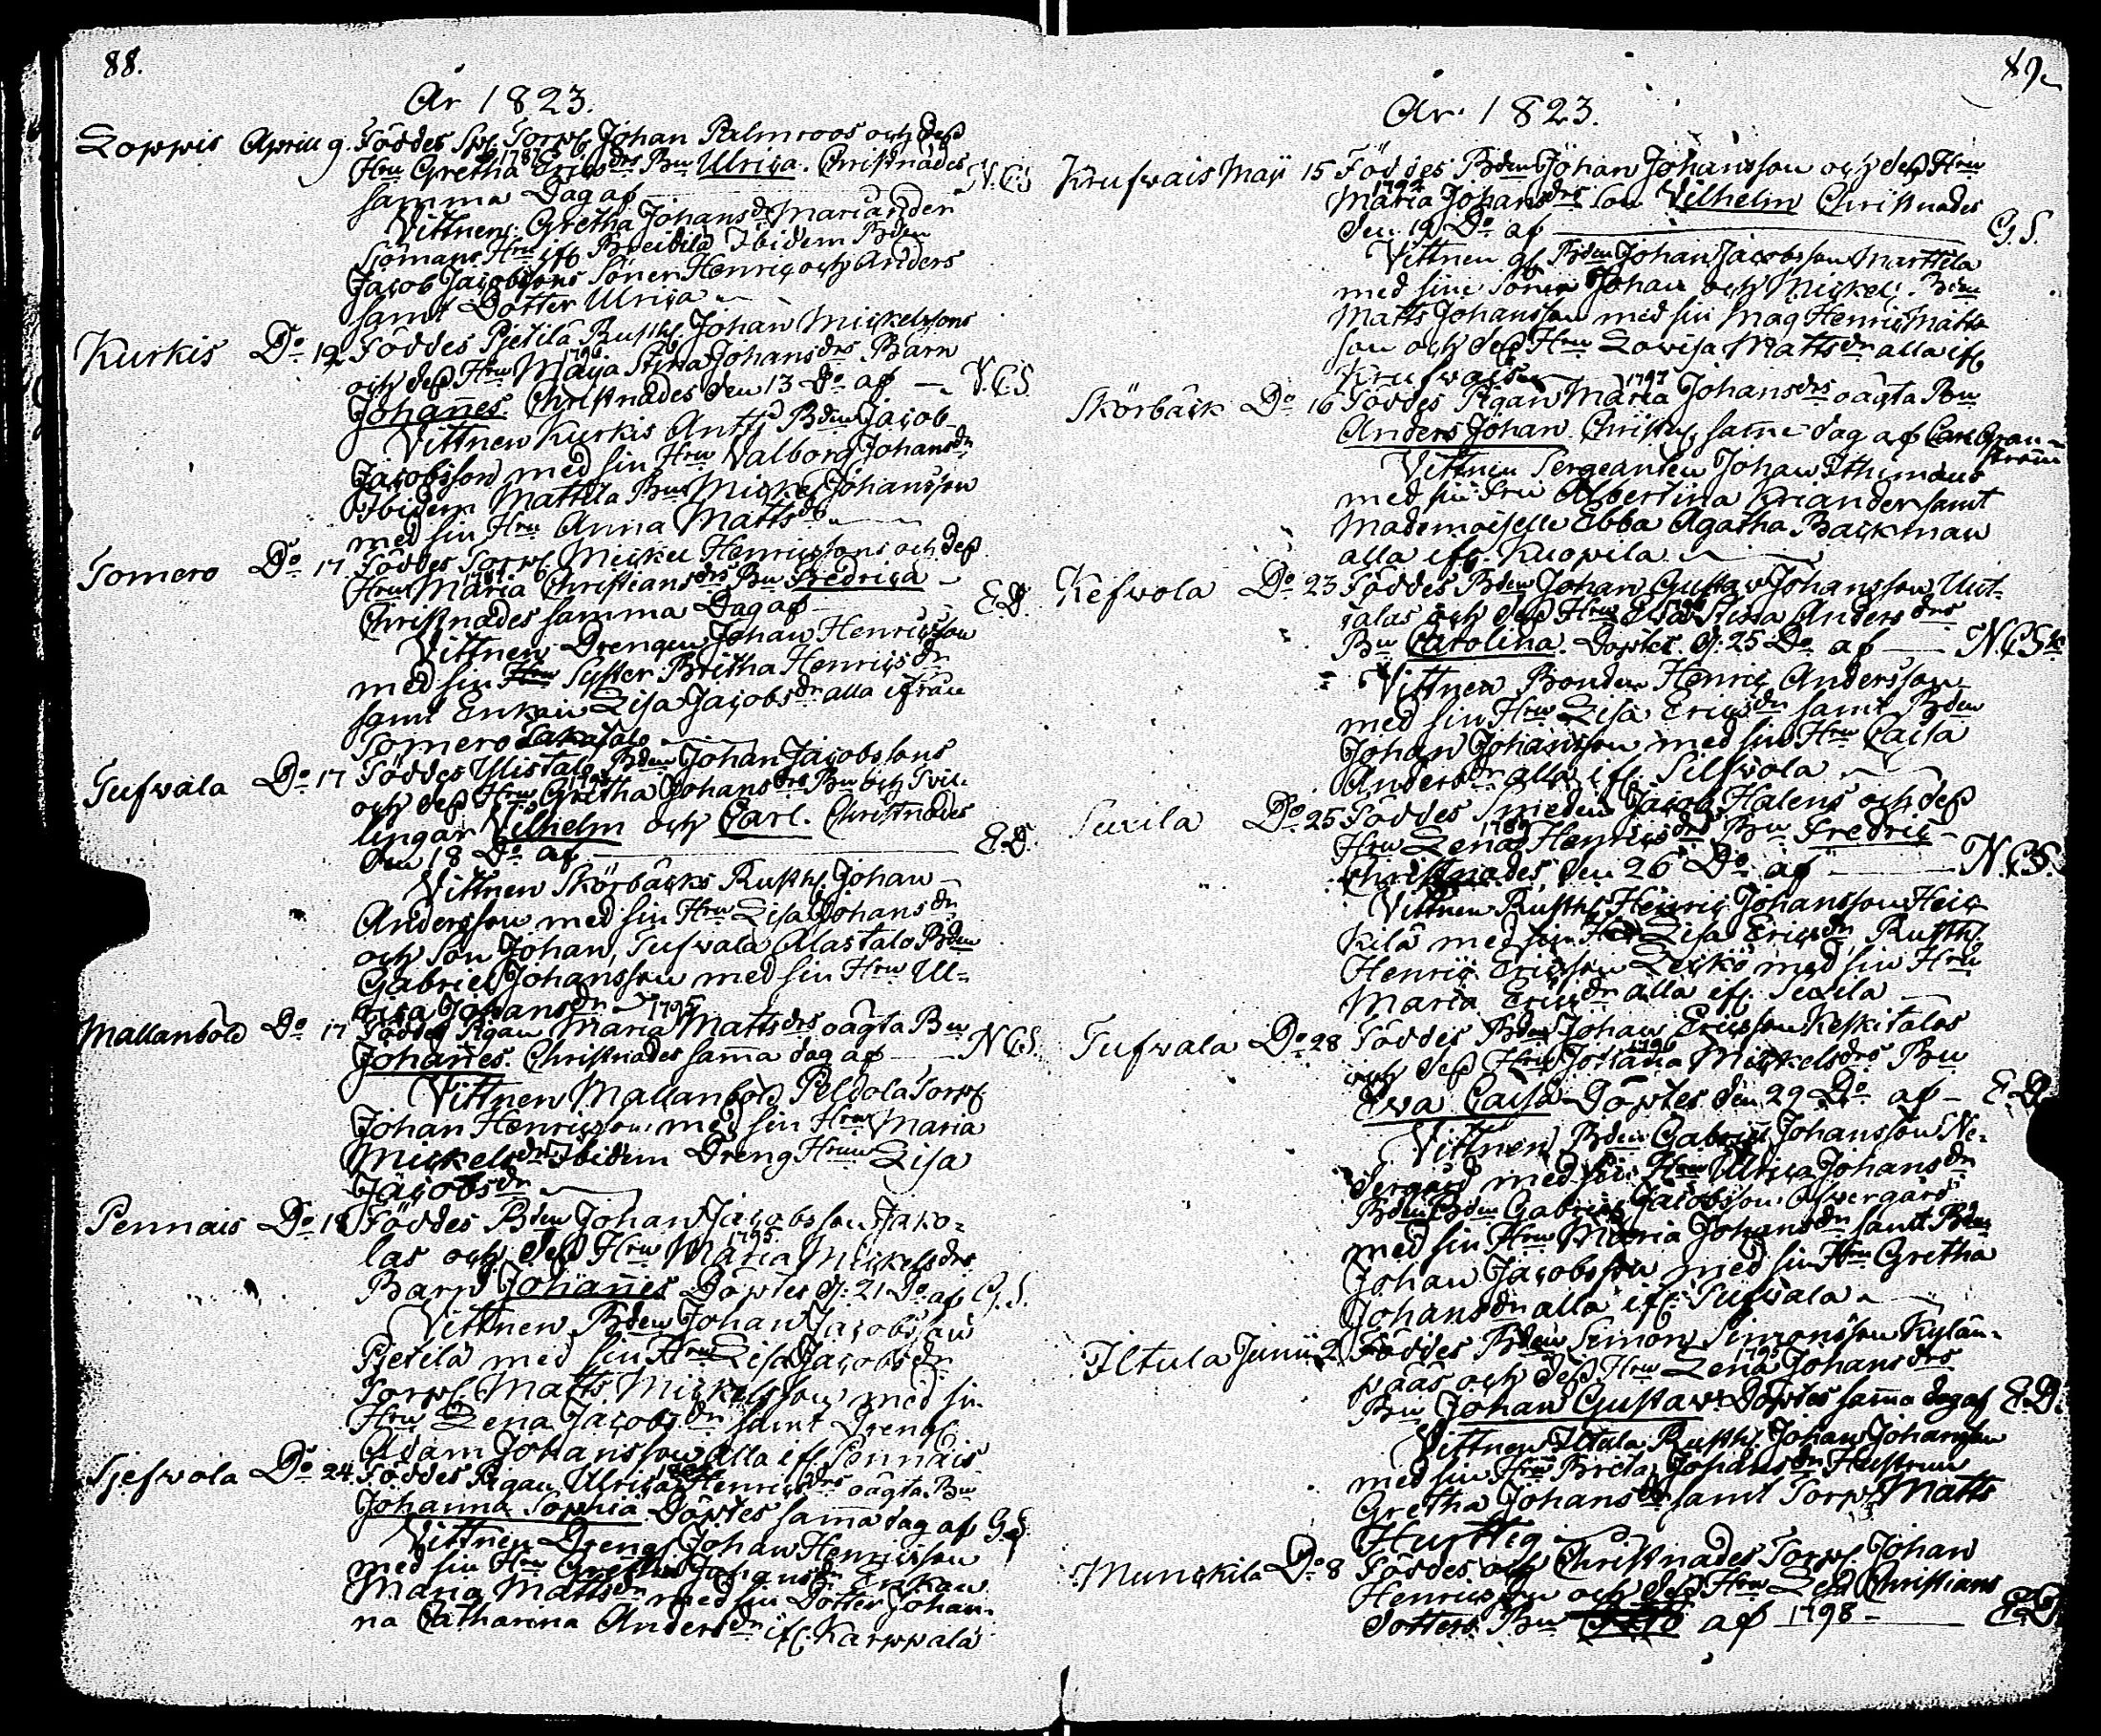 88.
År 1823.
Loppis Aprill 9. Föddes Torp. Johan Palmroos och dess
Hru Gretha 178 Ericsdrs Bn Ulrica. Christnades
samma Dag af N.C.S
Vittnen: Gretha Johansdr
Hru ifr. Ibidem Bden
Jacob Jacobssons Söner Henric och Anders
samt Dotter Ulrica
Kurkis Do 12 Föddes Pietilä Rusth. Johan Mickelssons
och dess Hru 1796 Maja Stina Johansdrs Barn
Johannes Christnades den 13 Do af N.C.S.
Vittnen Kurkis Antti Bden Jacob
Jacobsson med sin Hru Valborg Johansdr
Ibidem Mattila Bns Mickel Johansson
med sin Hru Anna Mattsdr
Somero Do 17. Föddes Torp. Mickel Henricssons och dess
Hru Maria Christiansdrs Bn Fredrica
Christnades samma Dag af E.D.
Vittnen Drengen Johan Henricsson
med sin Hru Syster Britha Henricsdr
samt Enkan Lisa Jacobsdr alla ifrån
Somero
Tufwala Do 17 Föddes Ulistalo Bden Johan Jacobssons
och dess Hru Gretha Johansdrs Bn och Tvil-
lingar Vilhelm och Carl. Christnades
den 18 Do af E.D.
Vittnen Skörbäcks Rusth. Johan
Andersson med sin Hru Lisa Johansdr
och Son Johan, Tufwala Alastalo Bden
Gabriel Johansson med sin Hru Ul-
rica Johansdr
Mallanböle Do 17 Föddes Pigan 1795 Maria Mattsdrs oägta Bn
Johannes. Christnades samma dag af N.C.S.
Vittnen Mallanböle Peldola Torp.
Johan Henricsson med sin Hru Maria
Mickelsdr Ibidem Dreng Hrun Lisa
Jacobsdr
Pennais Do 18 Föddes Bden Johan Jacobsson Jako-
las och dess Hru 1795 Maria Mickelsdrs
Barn Johannes Döptes d. 21 Do af G.S.
Vittnen Bden Johan Jacobsson
Pietilä med sin Hru Lisa Jacobsdr
Torp. Matts Mickelsson med sin
Hru Lena Jacobsdr samt Dreng
Adam Johansson alla ifr. Pennais
Sjefwola Do 24. Föddes Pigan Ulrica Henricsdrs oägta Bn
Johanna Sophia Döptes samma dag af G.S.
Vittnen Dreng. Johan Henricsson
med sin Hru Gretha Johansdr Enkan
Maria Mattsdr med sin Dotter Johan-
na Catharina Andersdr ifr. Karppala
89.
År 1823.
Krufwais Maji 15 Föddes Bden Johan Johansson och dess Hru
1792 Maria Johansdrs Son Vilhelm Christnades
den 19 Do af G.S.
Vittnen Bden Johan Jacobsson Marttila
med sine Söner Johan och Mickel. Bden
Matts Johansson med sin Mag Henric Matts
son och dess Hru Lovisa Mattsdr alla ifr.
Krufwais
Skörbäck Do 16 Föddes Pigan 1797 Maria Johansdrs oägta Bn
Anders Johan Christn. samme dag af Carl Gran-
ström
Vittnen Sergeanten Johan
med sin Fru Albertina Kriander samt
Mademoiselle Ebba Agatha Backman
alla ifr. Kuopila
Kefwola Do 23 Föddes Bden Johan Gustav Johansson Uut-
talas och dess Hru Stina Andersdrs
Bn Carolina. Döptes d. 25 Do af N.C.S.
Vittnen Bonden Henric Andersson
med sin Hru Lisa Ericsdr samt Bden
Johan Johansson med sin Hru Caisa
Andersdr alla ifr. Silfwola
Suxila Do 25 Föddes Smeden Jacob Halens och dess
Hru Lena Henricsdrs Bn Fredric
Christnades den 26 Do af N.C.S.
Vittnen Rusth. Henric Johansson Heic
kilä med sin Hru Lisa Ericsdr, Rusth.
Henric Ericsson med sin Hru
Maria Ericsdr alla ifr. Suxila
Tufwala Do 28 Föddes Bden Johan Ericsson Keskitalos
och dess Hru 1796 Johanna Mickelsdrs Bn
Eva Caisa Döptes den 29 Do af E.D.
Vittnen Bden Gabriel Johansson Ne-
dergård med sin Hru Ulrica Johansdr
Bden Bden Gabriel Jacobsson Öfvergård
med sin Hru Maria Johansdr samt Bden
Johan Jacobsson med sin Hru Gretha
Johansdr alla ifr. Tufwala
Iltula Junii 2 Föddes Bden Simon Simonsson Kylän-
pääs och dess Hru 1795 Lena Johansdrs
Bn Johan Gustav Döptes samma dag af E.D.
Vittnen Iltula Rusth. Johan Johansson
med sin Hru Brita Johansdr Hustrun
Gretha Johansdr samt Torp. Matts
Hurttig
Munckila Do 8 Föddes och Christnades Torp. Johan
Henricsson och dess Hru Lisa Christians
dotters Bn af 1798 E.D.